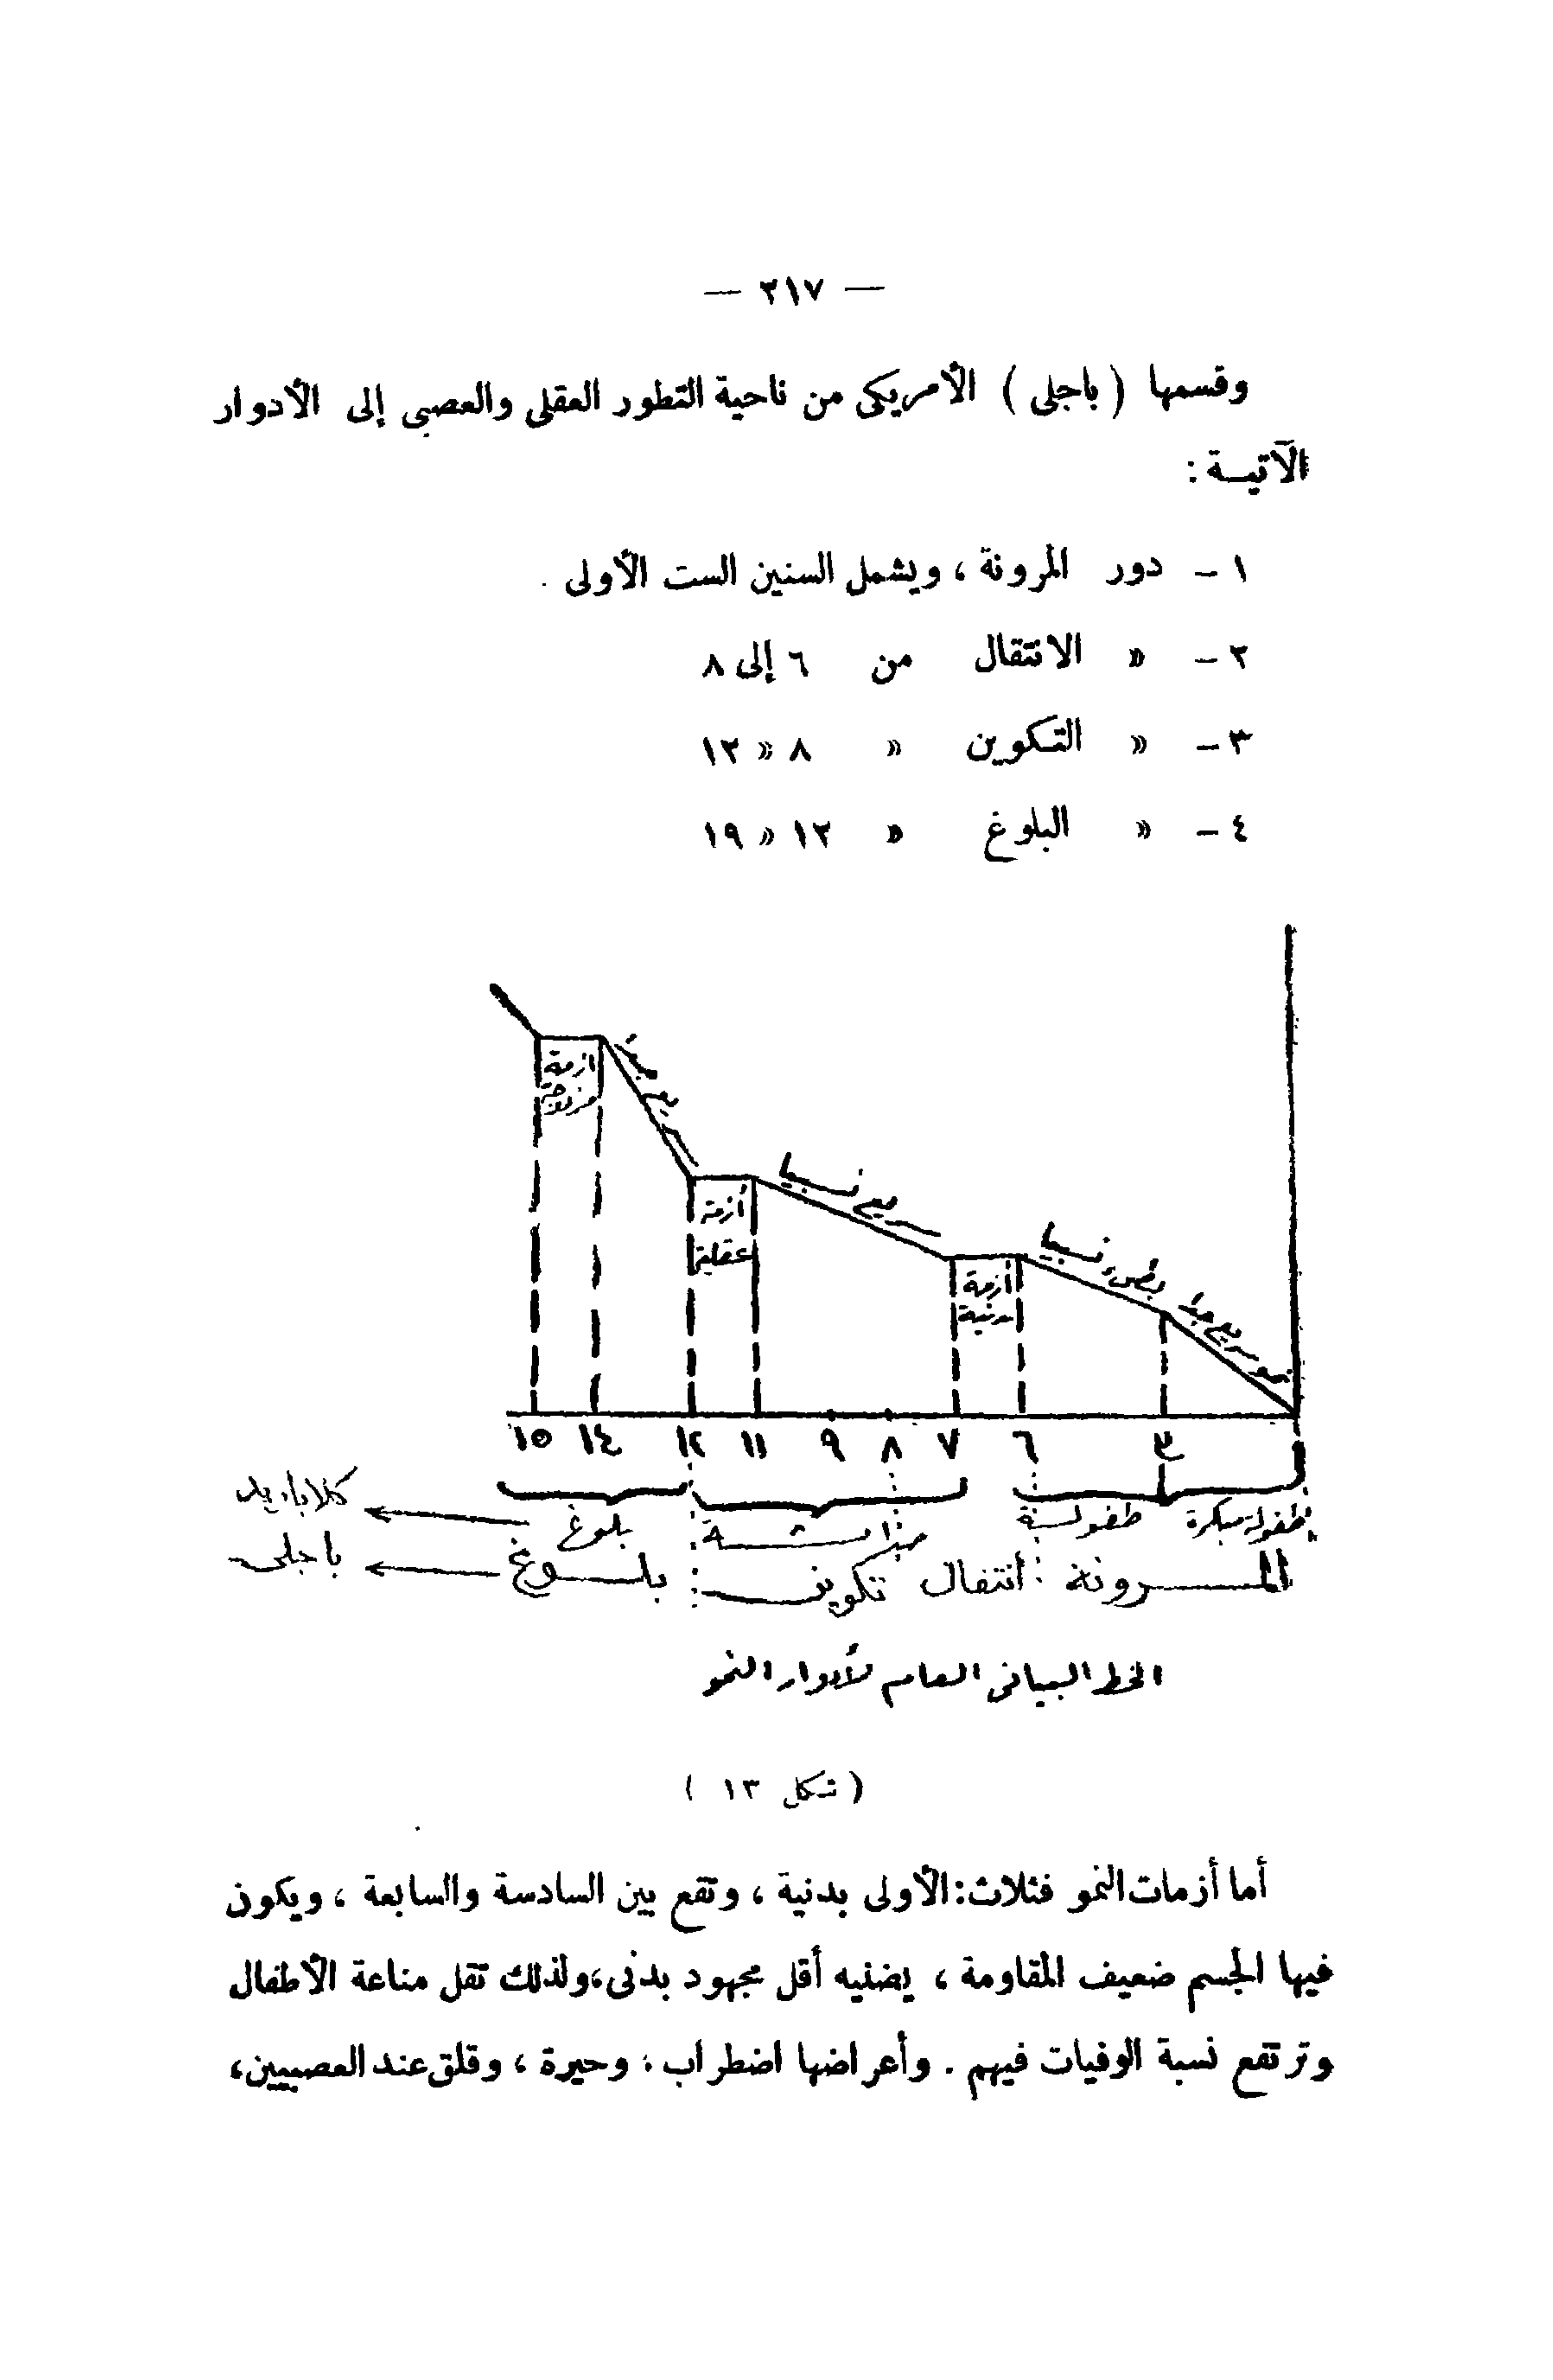 — ٢١٧ —
وقسمها ( باجلى ) الأمريكى من ناحية التطور العقلى والعصبى إلى الأدوار
الآتيـــة :
١ – دور المرونة ، ويشمل السنين الست الأولى .
٢ – « الانتقال من ٦ إلى ٨
٣ – « التكوين « ٨ « ١٢
٤ – « البلوغ « ١٢ « ١٩
نمو سريع جدا
بطىء نسبيا
سريع نسبيا
سريع
أزمة بدنية
أزمة عقلية
أزمة
٣ ٦ ٧ ٨ ٩ ١١ ١٢ ١٤ ١٥
طفولة مبكرة طفولة بلوغ
المرونة انتقال تكوين بلوغ باجلى
الخط البيانى العام لأدوار النمو
( شكل ١٣ )
أما أزمات النمو فثلاث : الأولى بدنية ، وتقع بين السادسة والسابعة ، ويكون
فيها الجسم ضعيف المقاومة ، يضنيه أقل مجهود بدنى ، ولذلك تقل مناعة الأطفال
وترتفع نسبة الوفيات فيهم . وأعراضها اضطراب ، وحيرة ، وقلق عند العصبيين ،